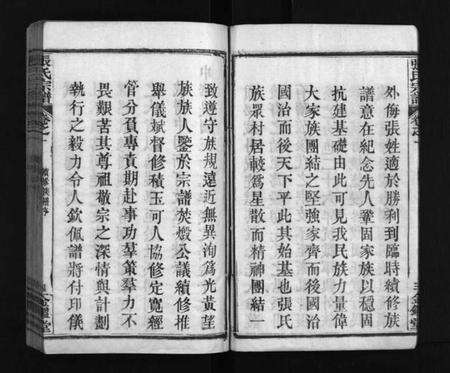 外侮張姓適於勝利到臨時續修族
譜意在紀念先人鞏固家族以穩固
抗建基礎由此可見我民族力量偉
大家族團結之堅強家齊而後國
國治而後天下平此其始基也張氏
族眾村居較為星散而精神團結一
致遵守族規遠近無異洵為光黃望
族族人鑒於宗譜焚燬公議續修推
舉儀斌督修積玉可人協修定寬經
管分負專責期赴事功羣策羣力不
畏艱苦其尊祖敬宗之深情與計劃
執行之毅力令人欽佩譜將付印儀
張氏宗譜
卷之一